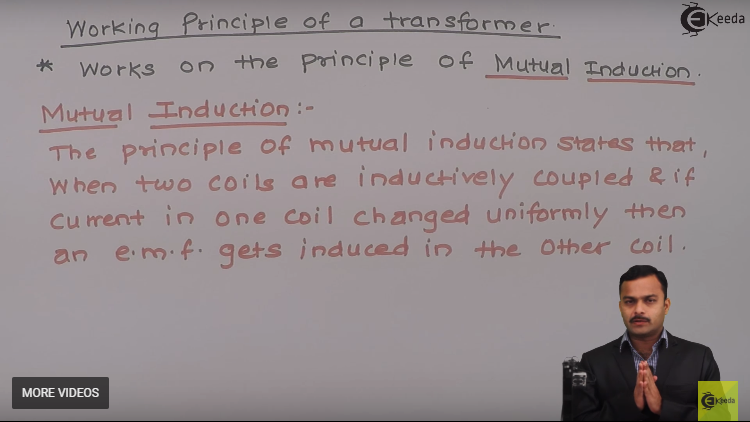 Working Principle of a transformer.
EKeeda
* Works on the principle of Mutual Induction.
Mutual Induction:-
The principle of mutual induction states that,
When two coils are inductively coupled & if
current in one coil changed uniformly then
an e.m.f. gets induced in the other coil.
MORE VIDEOS
EKeeda